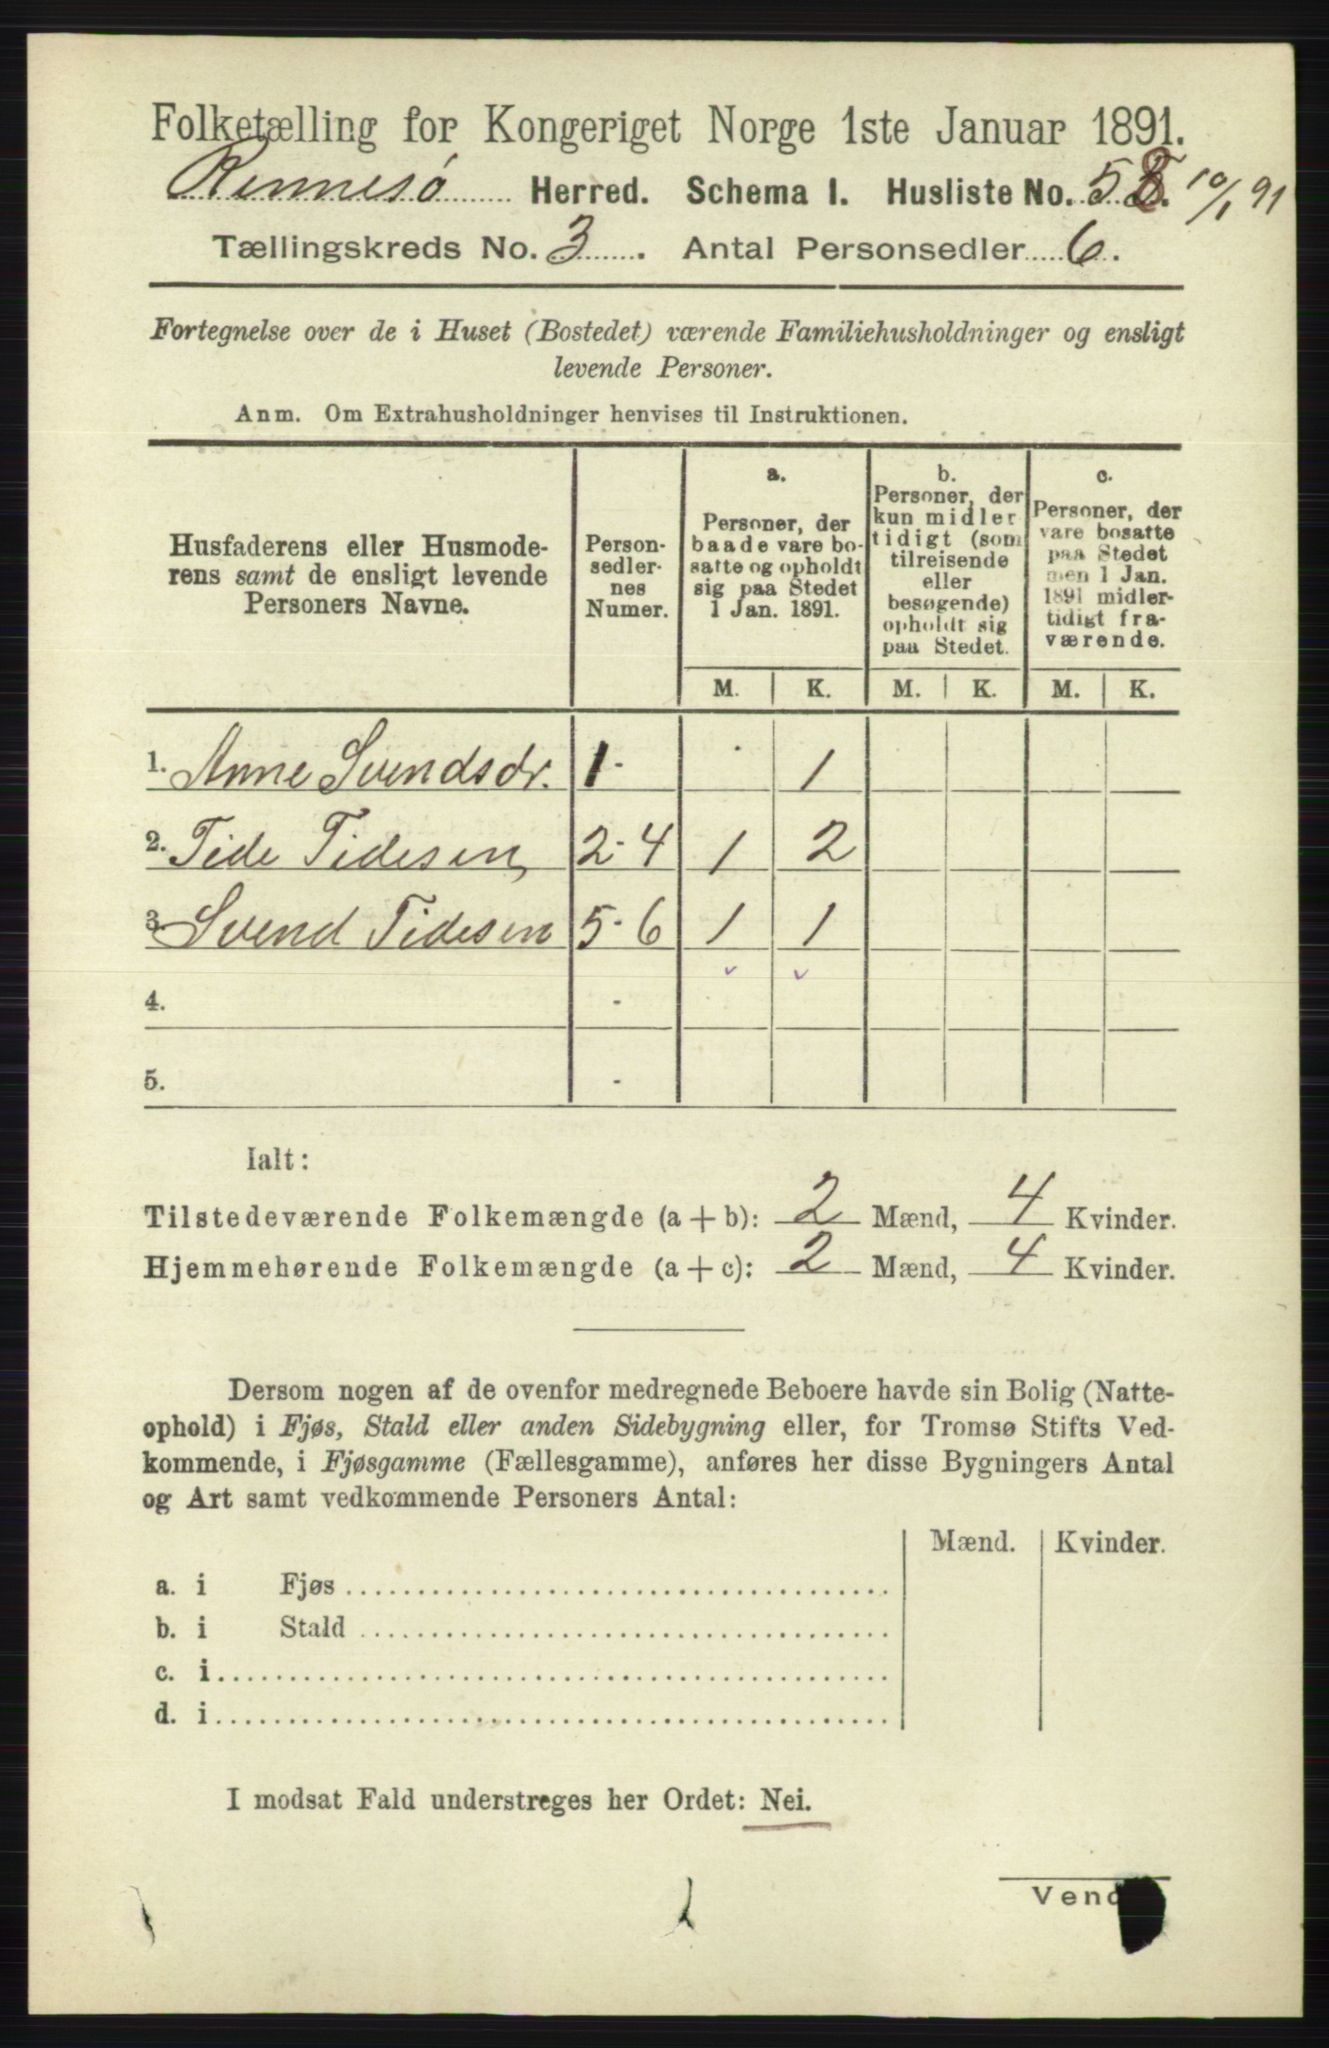 Folketælling for Kongeriget Norge 1ste Januar 1891.
Rennesö Herred. Schema I. Husliste No. 10/1 91
Tællingskreds No. 3. Antal Personsedler 6.
Fortegnelse over de i Huset (Bostedet) værende Familiehusholdninger og ensligt
levende Personer.
Anm. Om Extrahusholdninger henvises til Instruktionen.
Husfaderens eller Husmode-
rens samt de ensligt levende
Personers Navne.
Person-
sedler-
nes
Numer.
a.
Personer, der
baade vare bo-
satte og opholdt
sig paa Stedet
1 Jan. 1891.
b.
Personer, der
kun midler
tidigt (som
tilreisende
eller
besøgende)
opholdt sig
paa Stedet.
c.
Personer, der
vare bosatte
paa Stedet
men 1 Jan.
1891 midler-
tidigt fra-
værende.
M. K. M. K. M. K.
1. Anne Svendsdr. 1- 1
2. Tide Tidesen, 2-4 1 2
3. Svend Tidesen 5-6 1 1
4. -
5. -
Ialt:
Tilstedeværende Folkemængde (a + b): 2 Mænd, 4 Kvinder.
Hjemmehørende Folkemængde (a + c): 2 Mænd, 4 Kvinder.
Dersom nogen af de ovenfor medregnede Beboere havde sin Bolig (Natte-
ophold) i Fjøs, Stald eller anden Sidebygning eller, for Tromsø Stifts Ved-
kommende, i Fjøsgamme (Fællesgamme), anføres her disse Bygningers Antal
og Art samt vedkommende Personers Antal:
Mænd. Kvinder.
a. i Fjøs
b. i Stald
c. i
d. i
I modsat Fald understreges her Ordet: Nei.